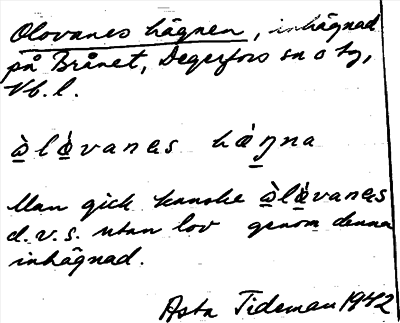 Olovanes hägnen, inhägnad
på Brånet, Degerfors sn o tg,
Vb. l.
ò̱lè̱vanes hæ̀ŋna
Man gick kanske ò̱lè̱vanes
d.v.s. utan lov genom denna
inhägnad.
Asta Tideman 1942